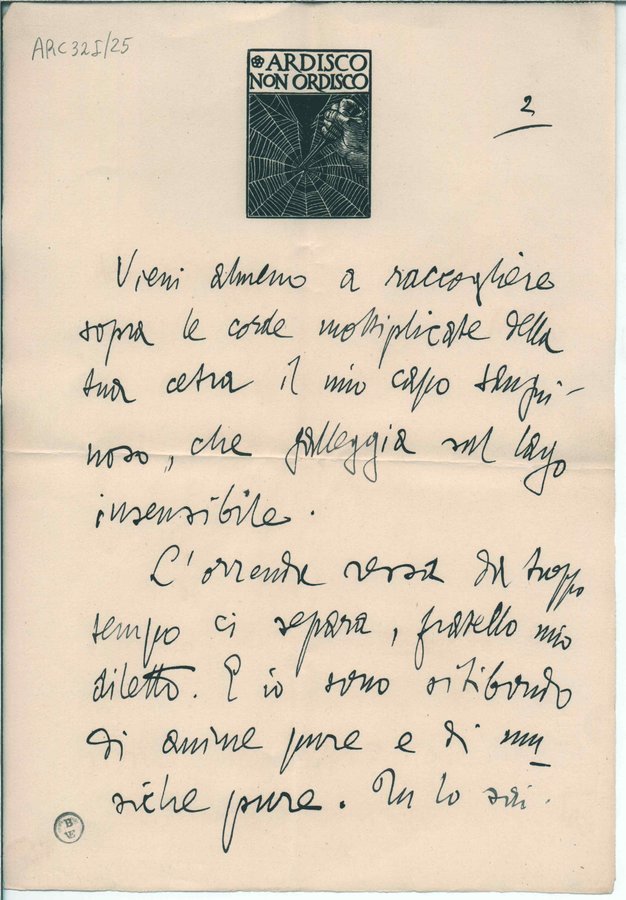 ARC32I/25
ARDISCO
NON ORDISCO
2
Vieni almeno a raccogliere
sopra le corde moltiplicate della
tua cetra il mio capo sangui-
noso, che galleggia sul lago
insensibile.
L'orrenda ressa da troppo
tempo ci separa, fratello mio
diletto. E io sono sitibondo
di anime pure e di mu
siche pure. Tu lo sai.